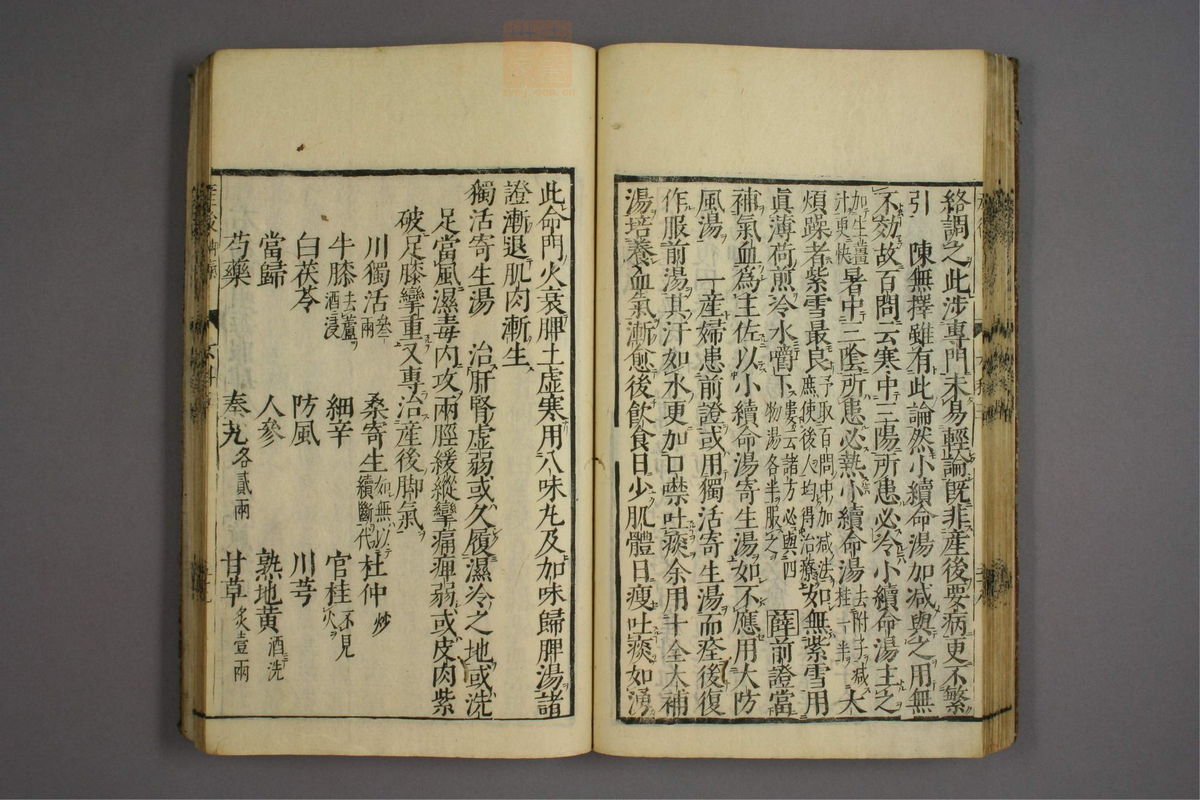 絡調之此涉專門未易輕論既非産後要病更不繁
引　陳無擇雖有此論然小續命湯加减與之用無
不効故百問云寒中三陽所患必冷小續命湯主之
加生薑汁更快暑中三陰所患必熱小續命湯去附子减桂一半大
煩躁者紫雪最良予取百問中加减法庶使後人均得治療如無紫雪用
眞薄荷煎冷水嚼下婁云諸方必與四物湯各半服之　薛前證當
補氣血為主佐以小續命湯寄生湯如不應用大防
風湯　一産婦患前證或用獨活寄生湯而痊後復
作服前湯其汗如水更加口噤吐痰余用十全大補
湯培養血氣漸愈後飲食日少肌體日瘦吐痰如湧
此命門火衰脾土虛寒用八味丸及加味歸脾湯諸
證漸退肌肉漸生
獨活寄生湯　治肝腎虛弱或久履濕冷之地或洗
足當風濕毒内攻兩脛緩縱攣痛痺弱或皮肉紫
破足膝攣重又專治産後脚氣
川獨活叁兩　桑寄生如無以續斷代　杜仲炒
牛膝去蘆酒浸　細辛　官桂不見火
白茯苓　防風　川芎
當歸　人參　熟地黄酒洗
芍藥　秦艽各貳兩　甘草炙壹兩